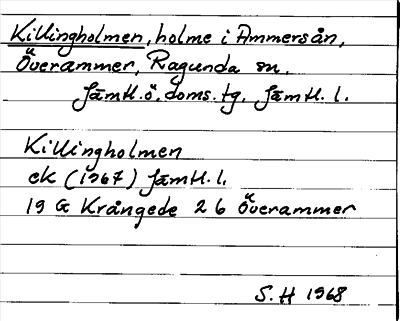 Killingholmen, holme i Ammersån,
Överammer, Ragunda sn.
Jämtl.ö. doms. tg. Jämtl. l.
Killingholmen
ek (1967) Jämtl. l.
19 G Krångede 2 b Överammer
S. H 1968